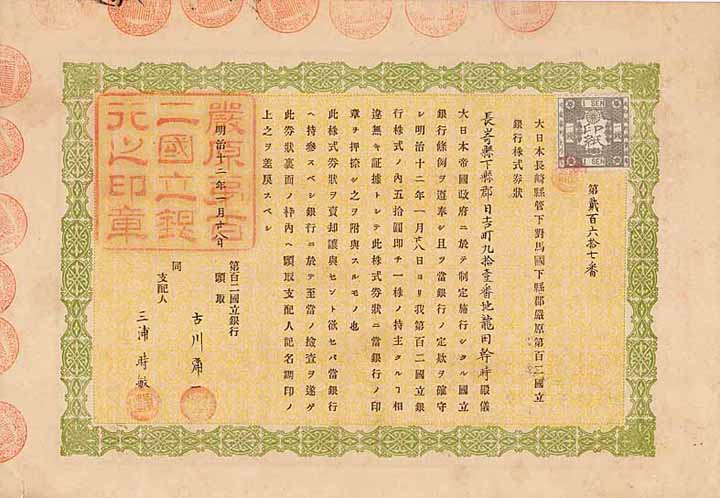 1 SEN
印紙
1 SEN
第貳百六拾七番
大日本長崎縣管下對馬國下縣郡嚴原第百二國立
銀行株式券狀
長崎縣下縣郡日吉町九拾壹番地龍田幹時殿儀
大日本帝國政府ニ於テ制定施行シタル國立
銀行條例ヲ遵奉シ且ツ當銀行ノ定欵ヲ確守
シ明治十二年一月廿八日ヨリ我第百二國立銀
行株式ノ内五拾圓即チ一株ノ持主タルヿ相
違無キ証據トシテ此株式券狀ニ當銀行ノ印
章ヲ押捺シ之ヲ附與スルモノ也
此株式券狀ヲ賣却讓與セント欲セバ當銀行
ヘ持參スベシ銀行ニ於テ至當ノ檢査ヲ遂ゲ
此券狀裏面ノ枠内ヘ頭取支配人記名調印ノ
上之ヲ差戻スベシ
明治十二年一月廿八日
嚴原第百
二國立銀
行之印章
第百二國立銀行
頭取
古川
同
支配人
三浦時敏